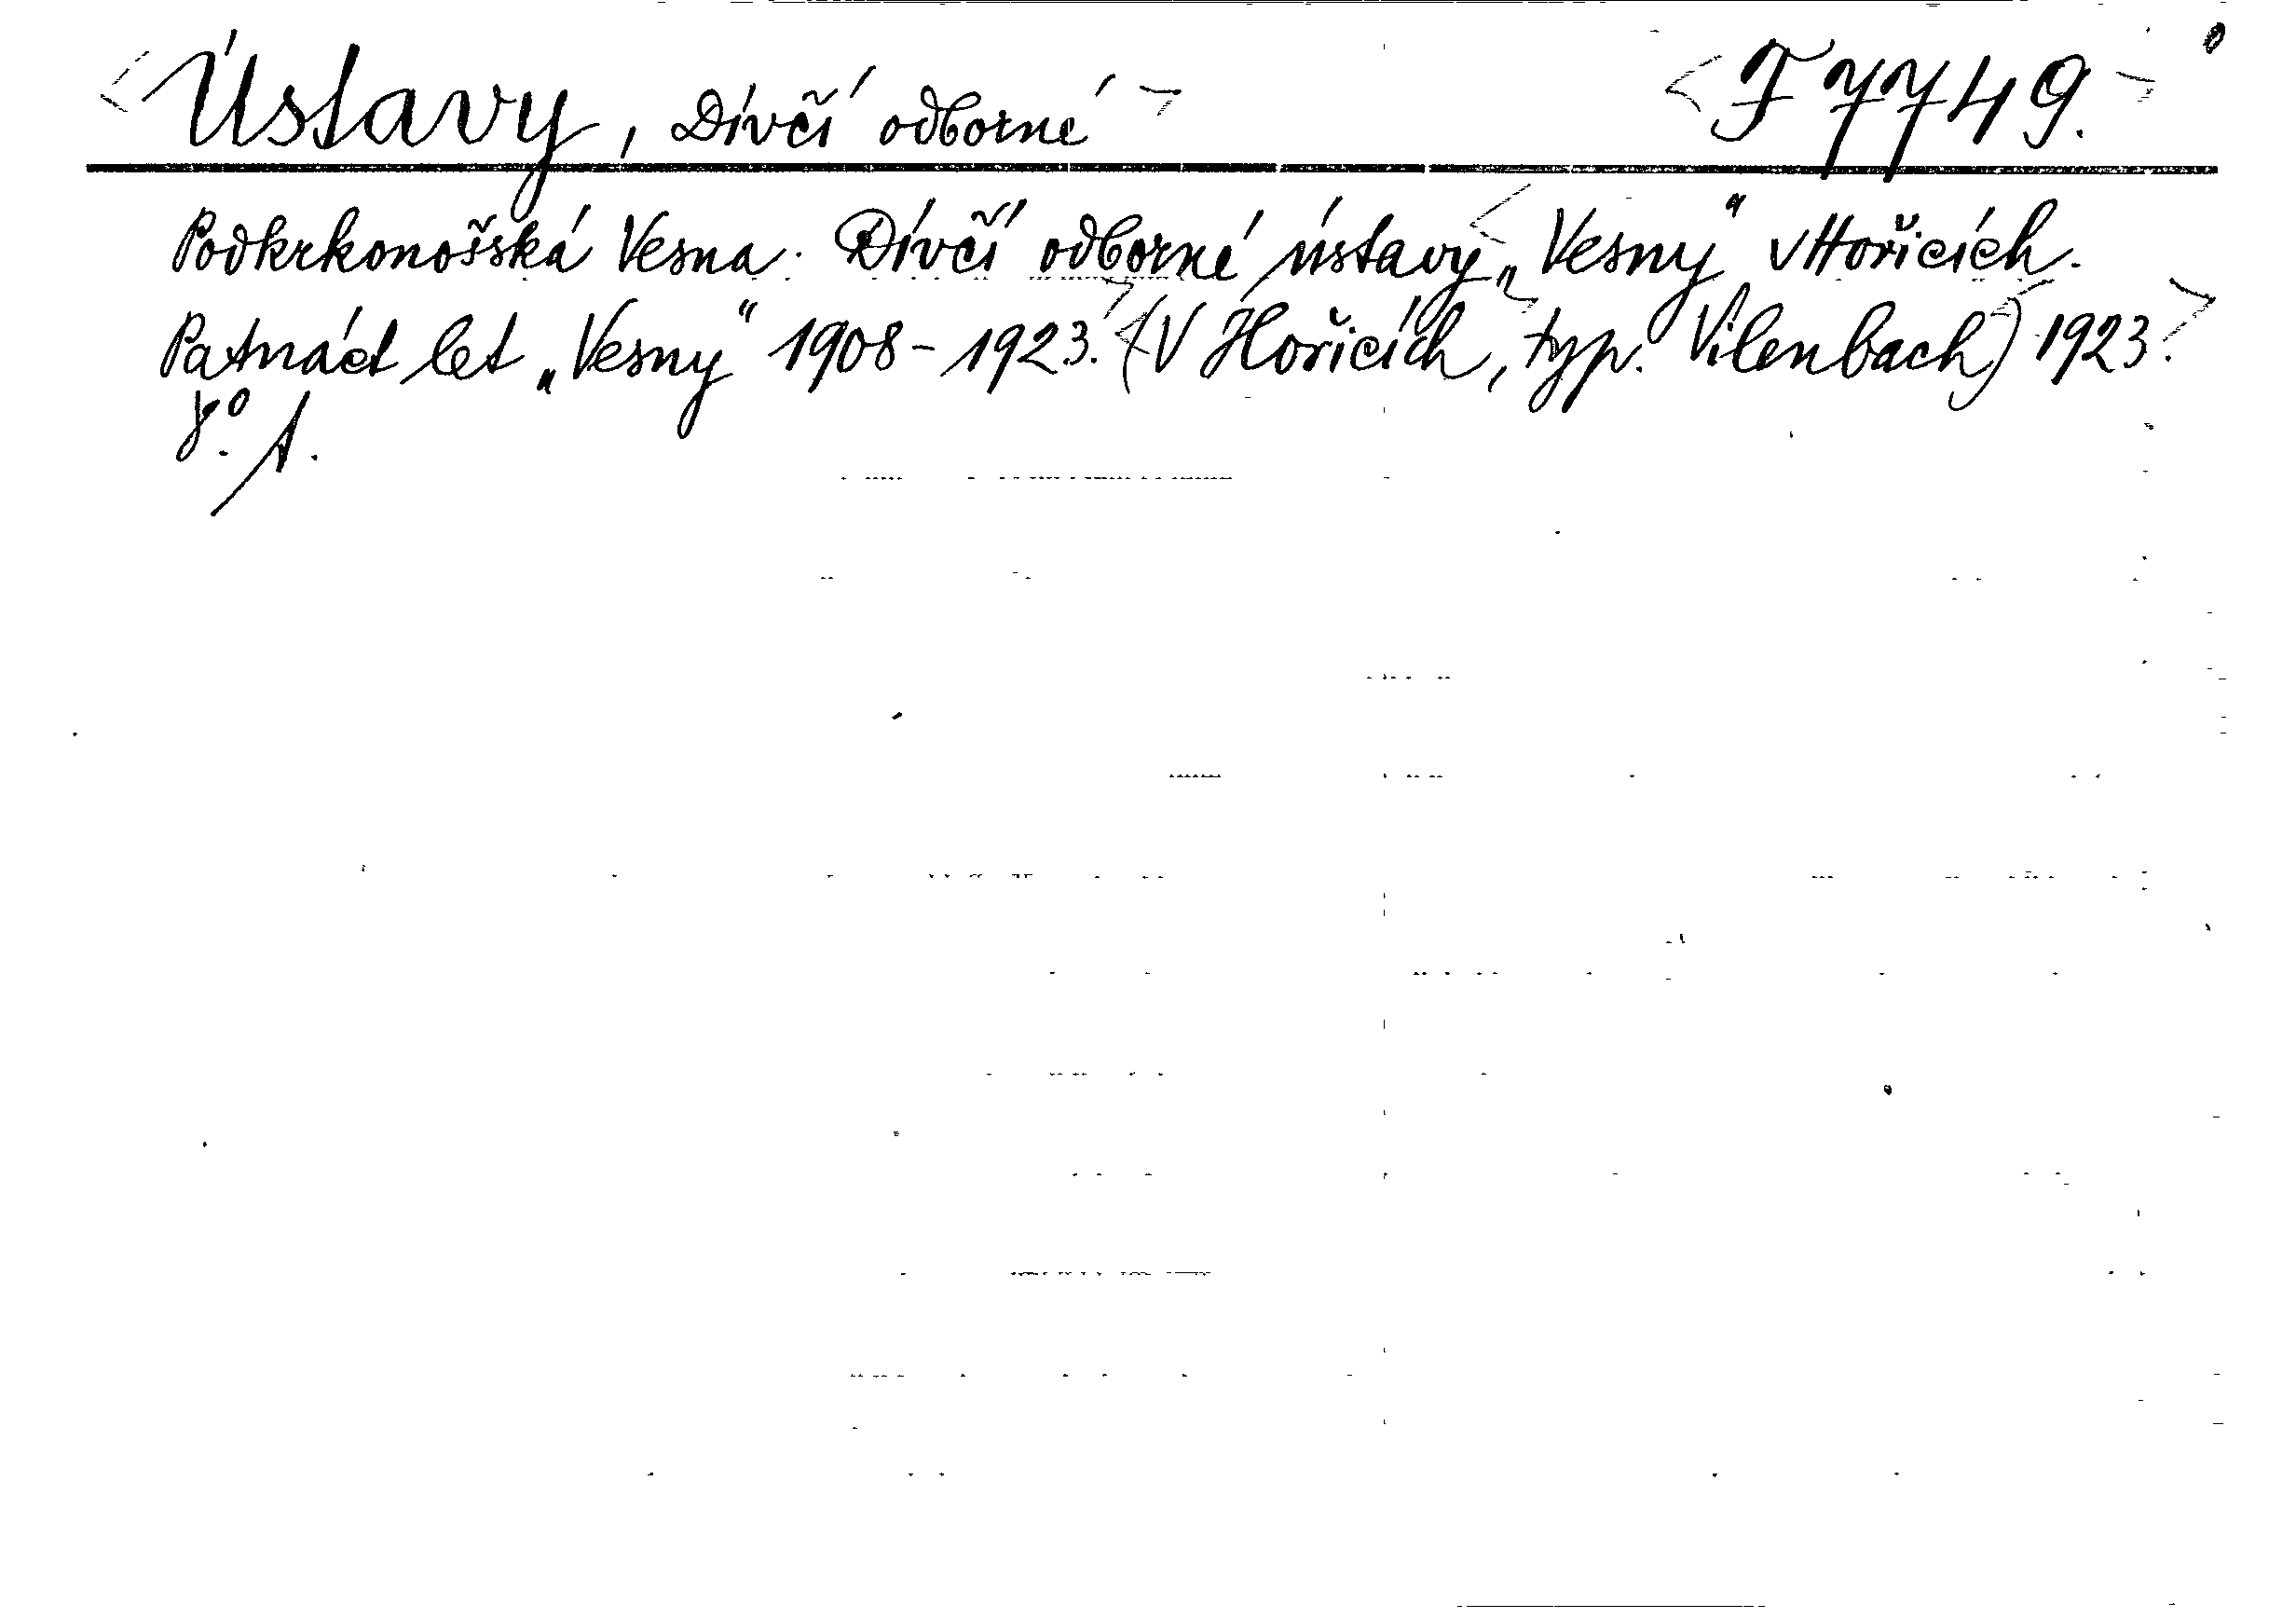 Ústavy, Dívčí odborné F 7749.
Podkrkonošská Vesna. Dívčí odborné ústavy „Vesny“ v Hořicích.
Patnáct let „Vesny“ 1908-1923. (V Hořicích, typ. Vilenbach) 1923.
8°. A.